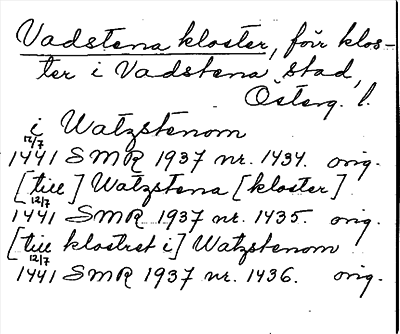 Vadstena kloster, förr klos-
ter i Vadstena stad,
Österg. l.
i Watzstenom
12/7 1441 SMR 1937 nr. 1434. orig.
[till] Watzstena [kloster]
12/7 1441 SMR 1937 nr. 1435. orig.
[till klostret i] Watzstenom
12/7 1441 SMR 1937 nr. 1436. orig.